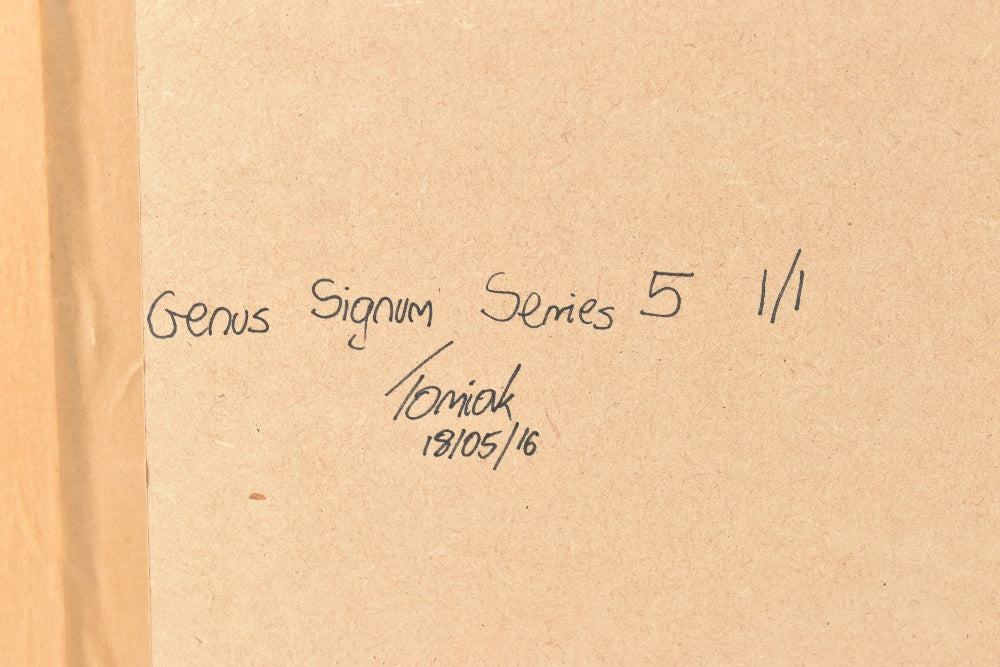 Genus Signum Series 5 1/1
Tomiak
18/05/16